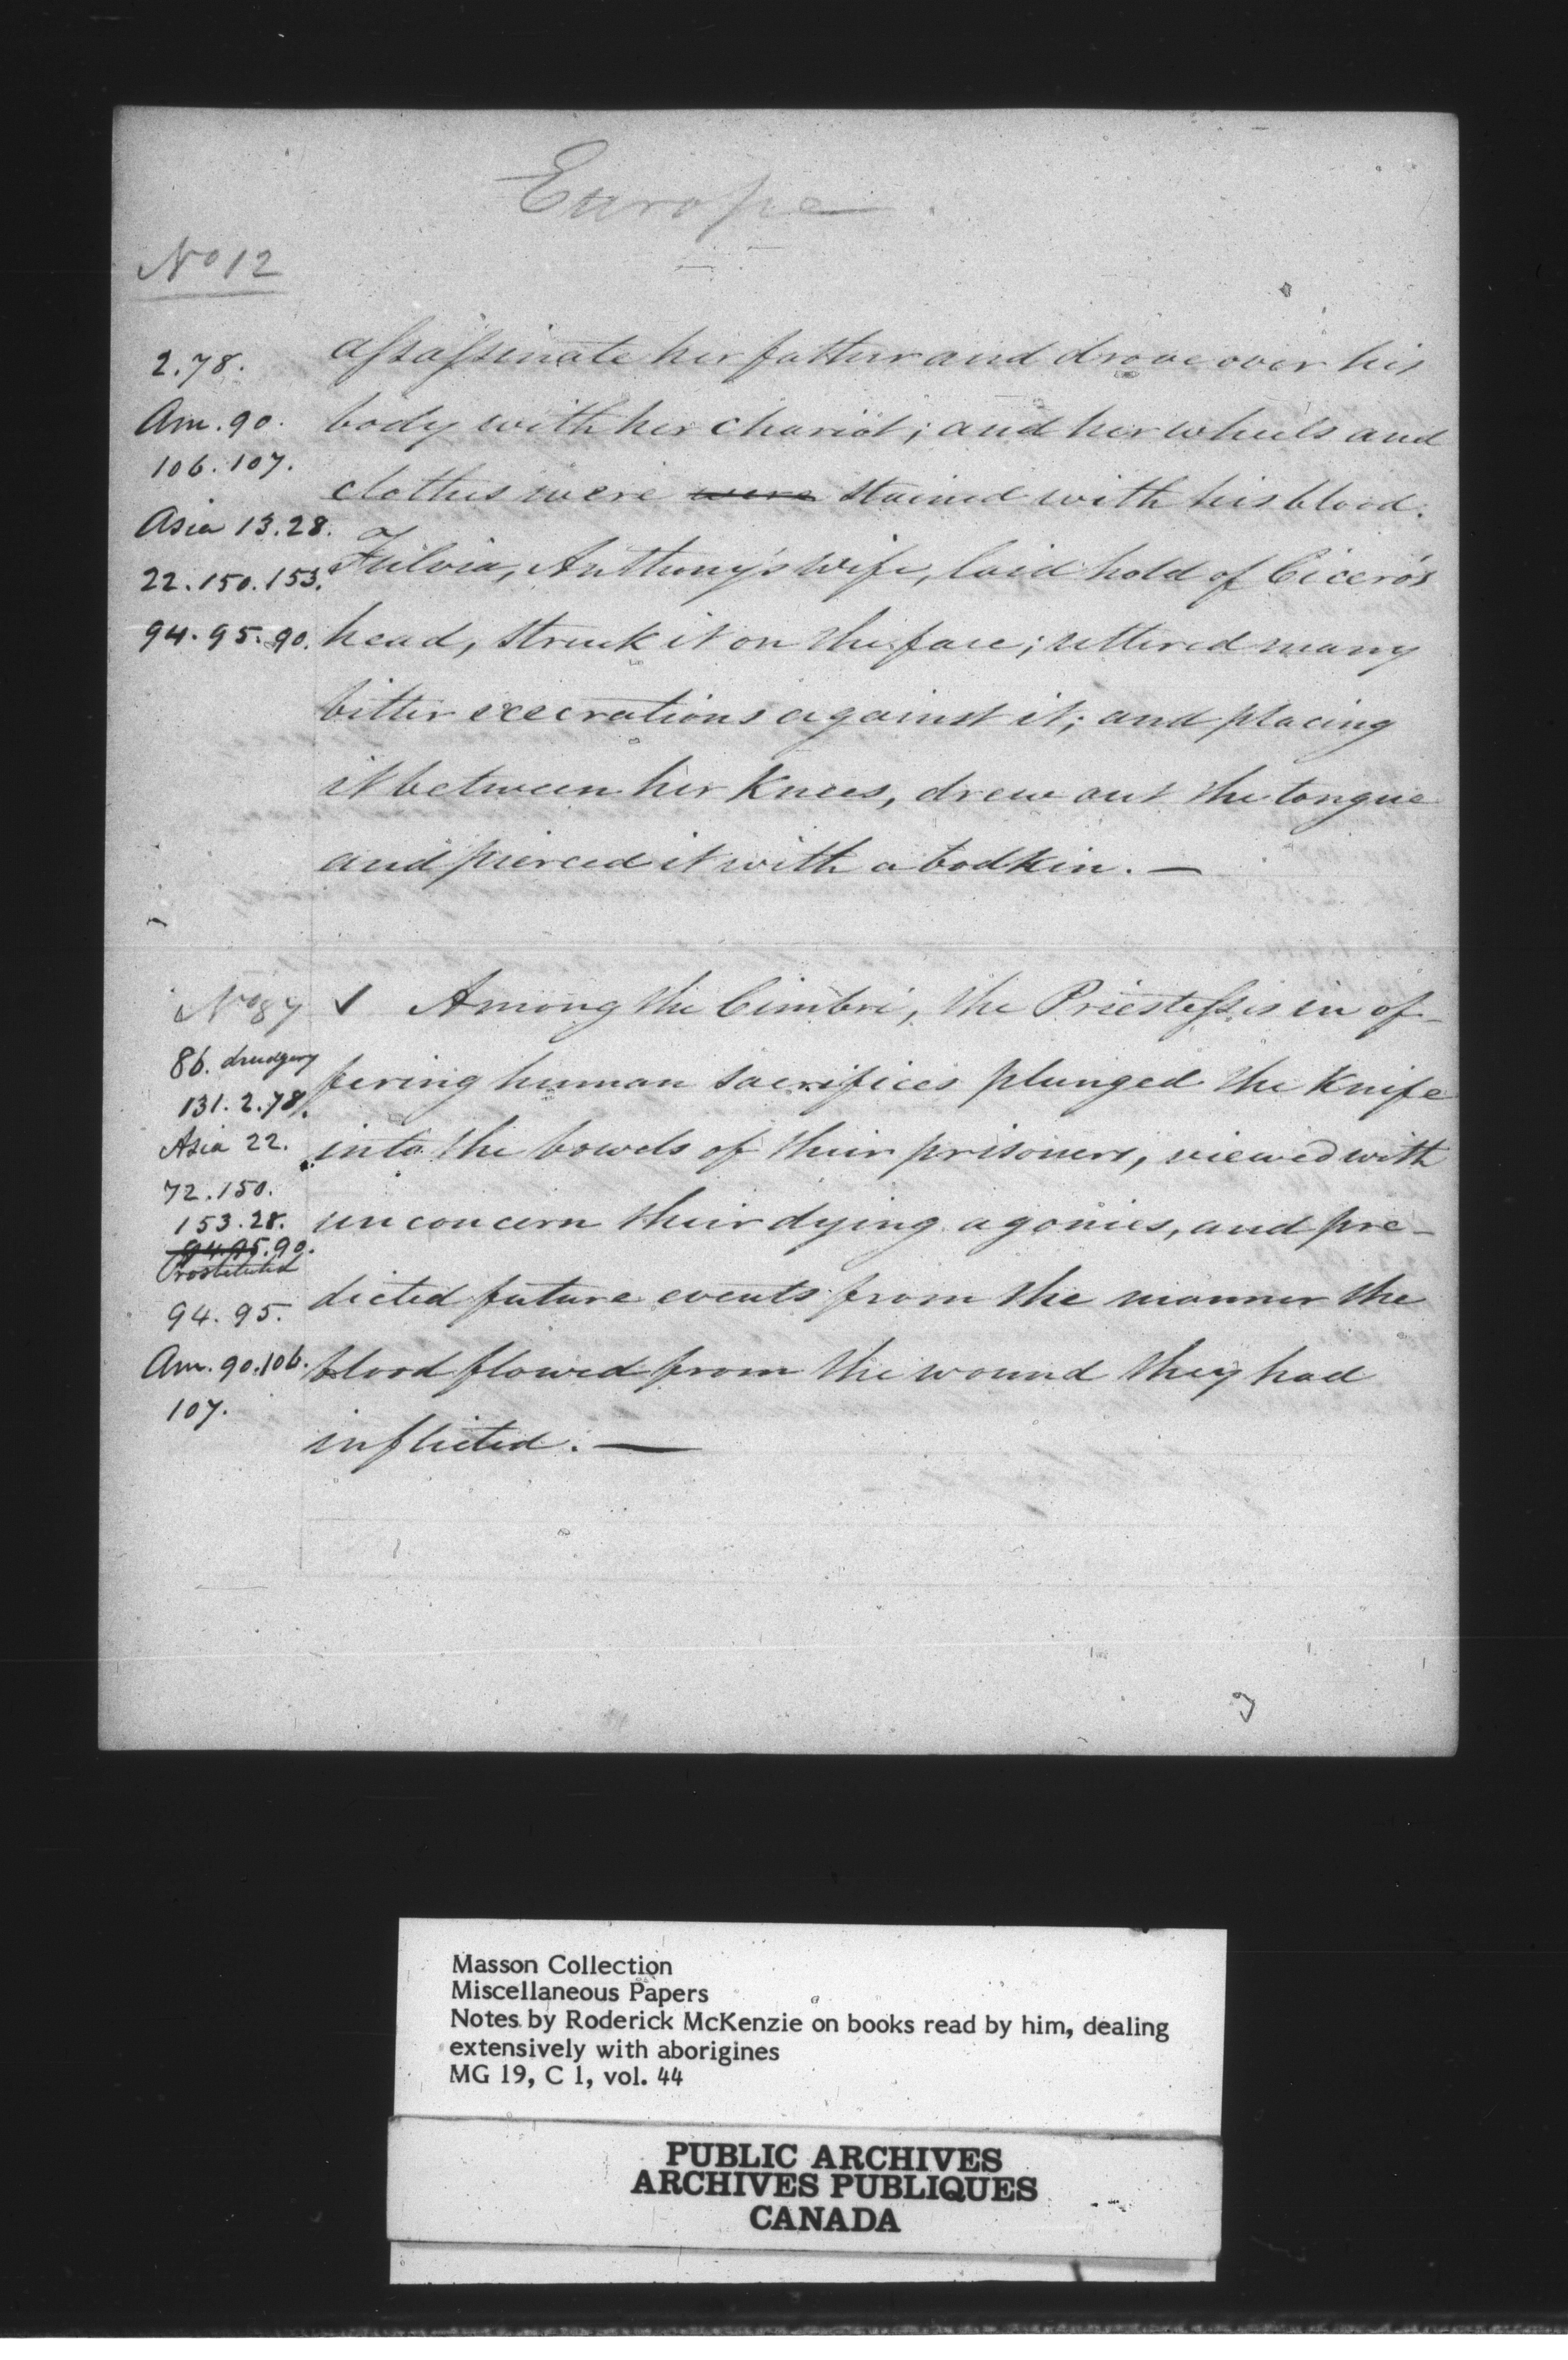 Europe.
No 12
2.78.
Am. 90.
106. 107.
Asia 13. 28.
22. 150. 153.
94. 95. 90.
assassinate her father and drove over his
body with her chariot; and her wheels and
clothes were were stained with his blood.
Fulvia, Anthony's wife, laid hold of Cicero's
head, struck it on the face; uttered many
bitter execrations against it; and placing
it between her Knees, drew out the tongue
and pierced it with a bodkin. —
No 87
86. drudgery
131. 2. 78.
Asia 22.
72. 150.
153. 28.
94. 95. 90.
Prostituted
94. 95.
Am. 90. 106.
107.
✓ Among the Cimbri, the Priestesses in of-
fering human sacrifices plunged the Knife
into the bowels of their prisoners, viewed with
unconcern their dying agonies, and pre-
dicted future events from the manner the
blood flowed from the wound they had
inflicted. —
Masson Collection
Miscellaneous Papers
Notes by Roderick McKenzie on books read by him, dealing
extensively with aborigines
MG 19, C 1, vol. 44
PUBLIC ARCHIVES
ARCHIVES PUBLIQUES
CANADA